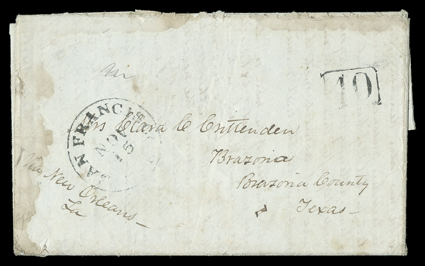 via
10
SAN FRANCIS
NOV
15
Mrs Clara C Crittenden
Brazoria
Brazoria County
Texas -
Via New Orleans -
La